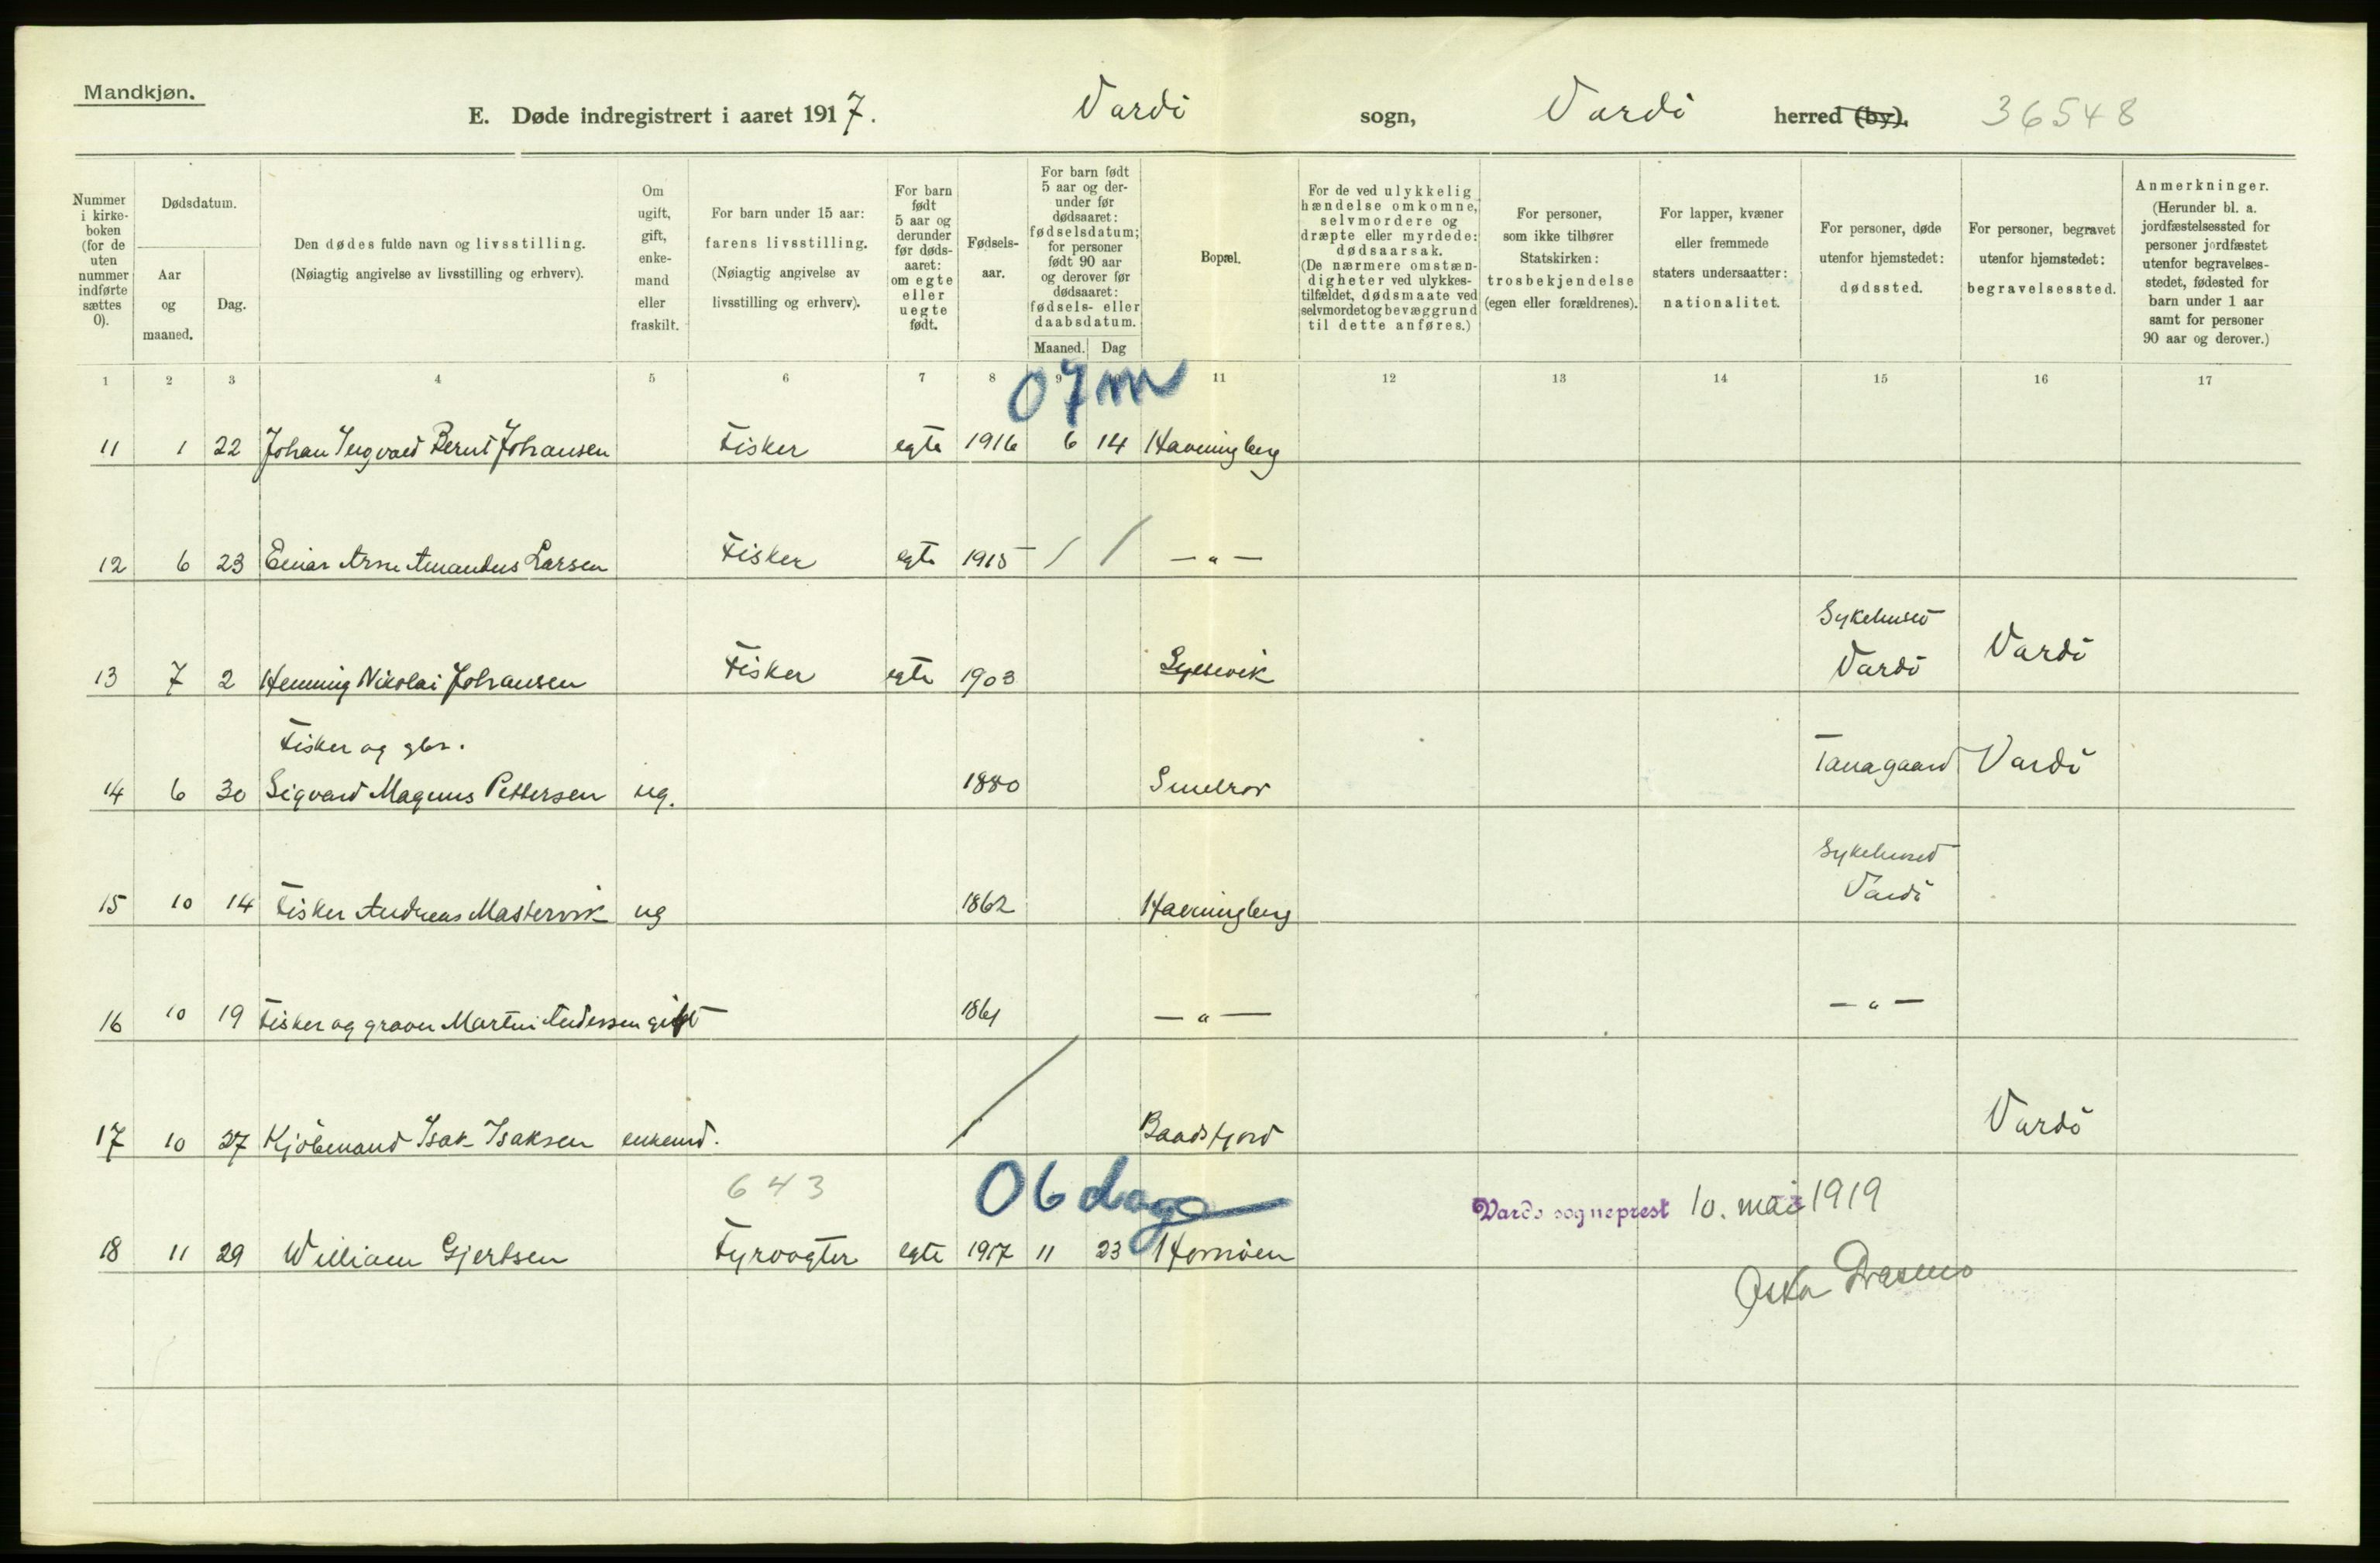 Mandkjøn.
E. Døde indregistrert i aaret 1917. Vardö sogn, Vardö herred (by). 36548
Nummer i kirkeboken (for de uten nummer indførte sættes 0).
Dødsdatum.
Aar og maaned.
Dag.
Den dødes fulde navn og livsstilling.
(Nøiagtig angivelse av livsstilling og erhverv).
Om ugift, gift, enkemand eller fraskilt.
For barn under 15 aar: farens livsstilling.
(Nøiagtig angivelse av livsstilling og erhverv).
For barn født 5 aar og derunder før dødsaaret: om egte eller uegte født.
Fødselsaar.
For barn født 5 aar og derunder før dødsaaret: fødselsdatum; for personer født 90 aar og derover før dødsaaret: fødsels- eller daabsdatum.
Maaned. Dag
Bopæl.
For de ved ulykkelig hændelse omkomne, selvmordere og dræpte eller myrdede: dødsaarsak.
(De nærmere omstændigheter ved ulykkestilfældet, dødsmaate ved selvmordet og bevæggrund til dette anføres.)
For personer, som ikke tilhører Statskirken: trosbekjendelse (egen eller forældrenes).
For lapper, kvæner eller fremmede staters undersaatter: nationalitet.
For personer, døde utenfor hjemstedet: dødssted.
For personer, begravet utenfor hjemstedet: begravelsessted.
Anmerkninger.
(Herunder bl. a. jordfæstelsessted for personer jordfæstet utenfor begravelsesstedet, fødested for barn under 1 aar samt for personer 90 aar og derover.)
1 2 3 4 5 6 7 8 9 11 12 13 14 15 16 17
07m
11 1 22 Johan Ingvald Bernt Johansen Fisker egte 1916 6 14 Havningberg
12 6 23 Einar Arne Amandus Larsen Fisker egte 1915 / / — " —
Sykehuset
13 7 2 Henning Nikolai Johansen Fisker egte 1903 Syltevik Vardö Vardö
Fisker og gbr.
14 6 30 Sigvard Magnus Pettersen ug. 1880 Smelror Tanagaard Vardö
Sykehuset
15 10 14 Fisker Andreas Mastervik ug 1862 Havningberg Vardö
16 10 19 Fisker og graver Martin Andersen gift 1861 — " — — " —
17 10 27 Kjöbmand Isak Isaksen enkemd. / Baadsfjord Vardö
643 06 dage
Vardø sogneprest 10. mai 1919
18 11 29 William Gjertsen Fyrvogter egte 1917 11 23 Hornöen